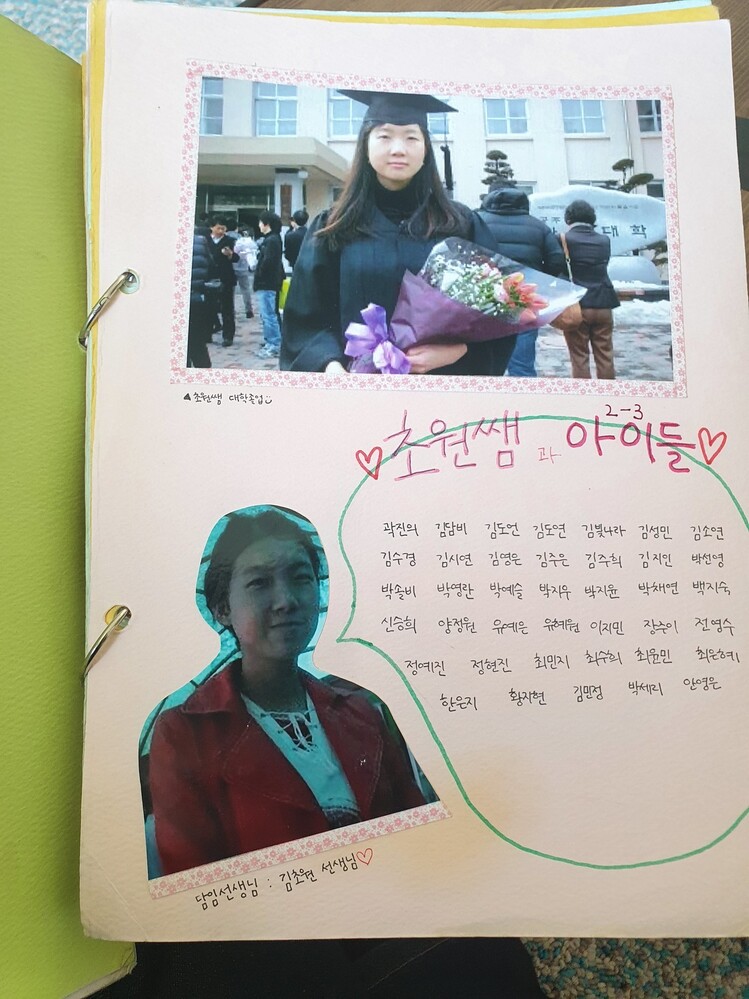 공주
대학
▲초원쌤 대학졸업
2-3
초원쌤 과 아이들
곽진의 김담비 김도언 김도연 김빛나라 김성민 김소연
김수경 김시연 김영은 김주은 김주희 김지인 박선영
박솔비 박영란 박예슬 박지우 박지윤 박채연 백지숙
신승희 양정원 유예은 유혜원 이지민 장주이 전영수
정예진 정현진 최민지 최수희 최윤민 최은혜
한은지 황지현 김민정 박세리 안영은
담임선생님 : 김초원 선생님